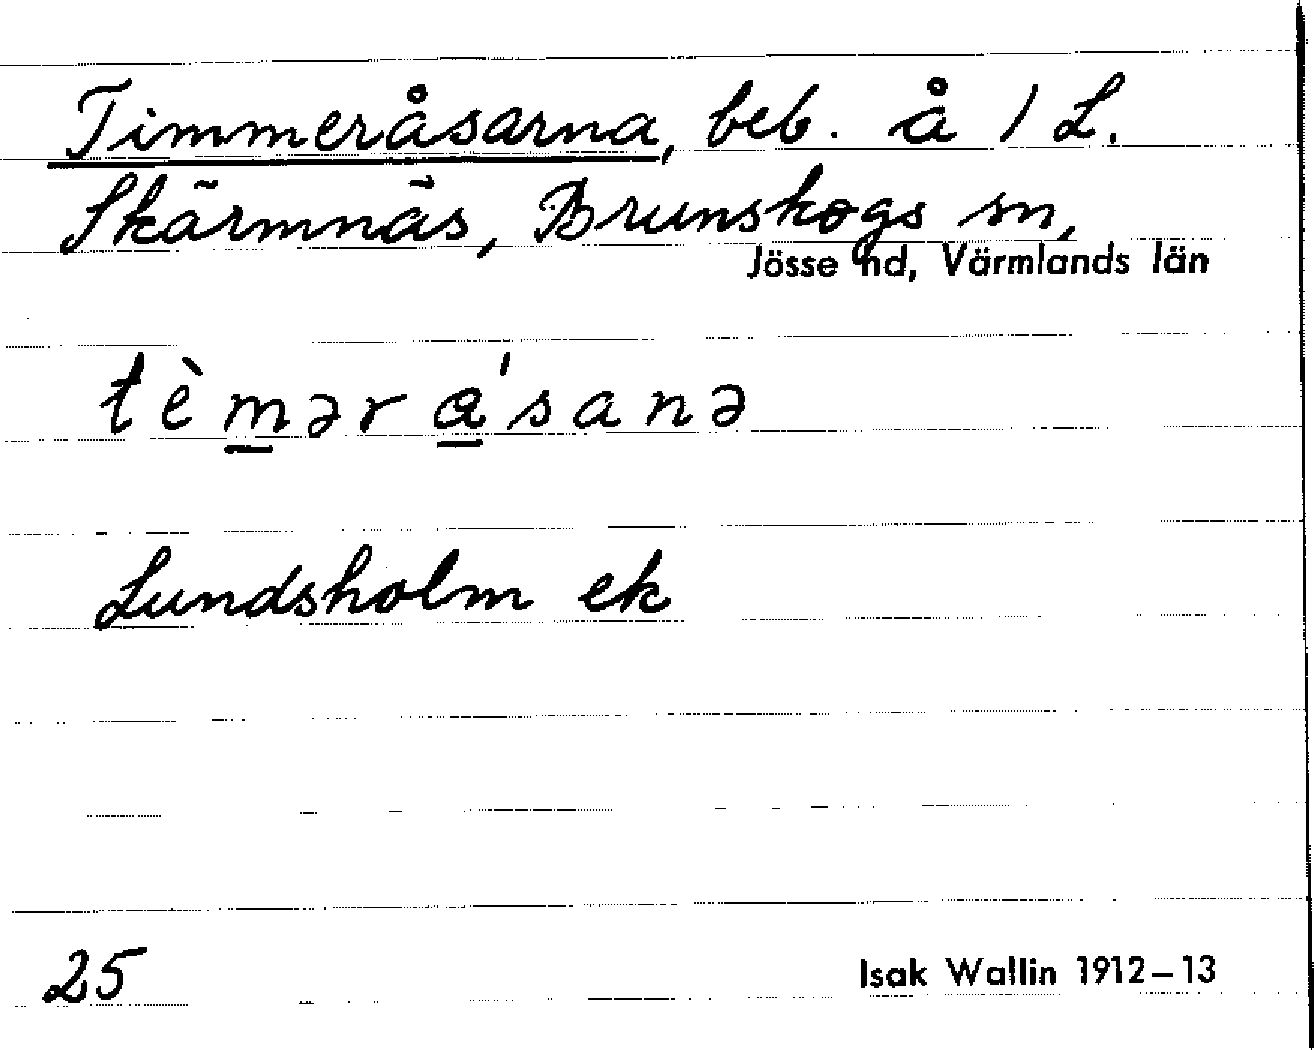 Timmeråsarna, beb. å 1 L.
Skärmnäs, Brunskogs sn,
Jösse hd, Värmlands län
tèmər a'sanə
Lundsholm ek
25
Isak Wallin 1912–13